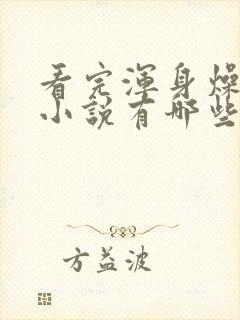 看完浑身燥
小说有哪些
方益波